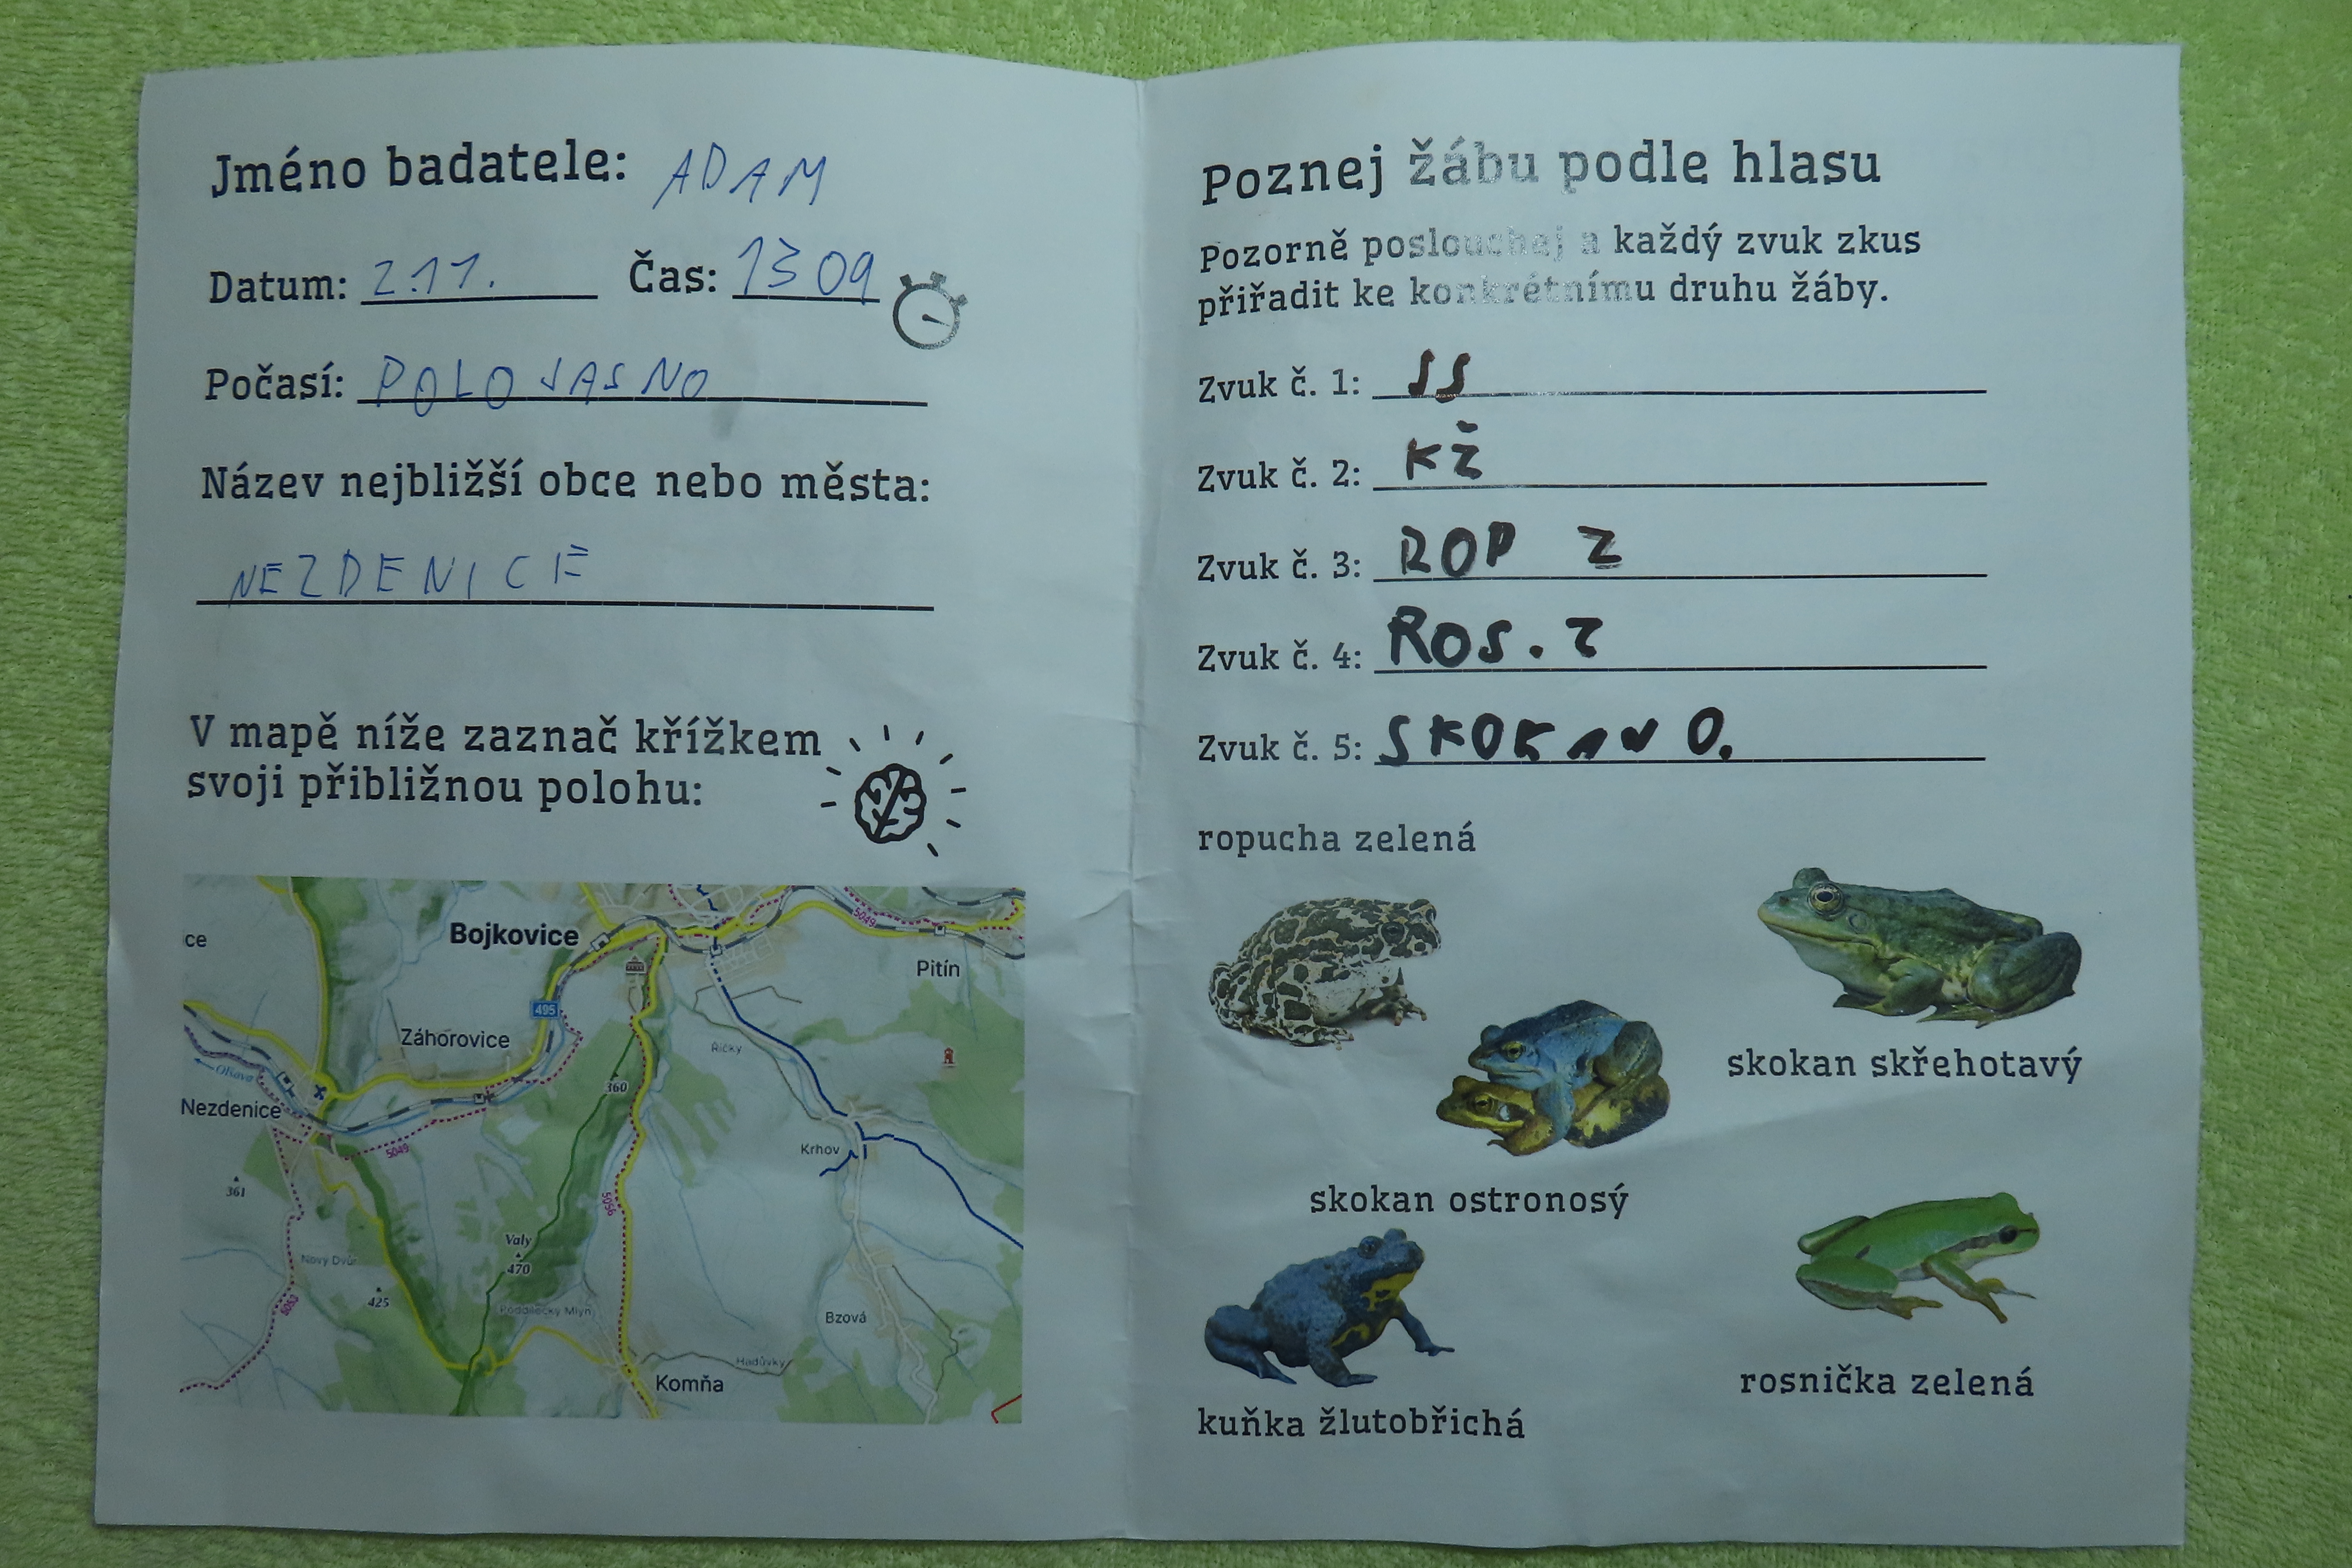 Jméno badatele: ADAM
Datum: 2.11. Čas: 13 09
Počasí: POLOJASNO
Název nejbližší obce nebo města:
NEZDENICE
V mapě níže zaznač křížkem
svoji přibližnou polohu:
ce
Bojkovice
5049
Pitín
495
Záhorovice
Říčky
Olšava
360
Nezdenice
5049
Krhov
361
5056
Valy
470
Nový Dvůr
425
5053
Poddílečky Mlýn
Bzová
Hadůvky
Komňa
Poznej žábu podle hlasu
Pozorně poslouchej a každý zvuk zkus
přiřadit ke konkrétnímu druhu žáby.
Zvuk č. 1: SS
Zvuk č. 2: KŽ
Zvuk č. 3: ROP Z
Zvuk č. 4: ROS. Z
Zvuk č. 5: SKOKAN O.
ropucha zelená
skokan skřehotavý
skokan ostronosý
rosnička zelená
kuňka žlutobřichá